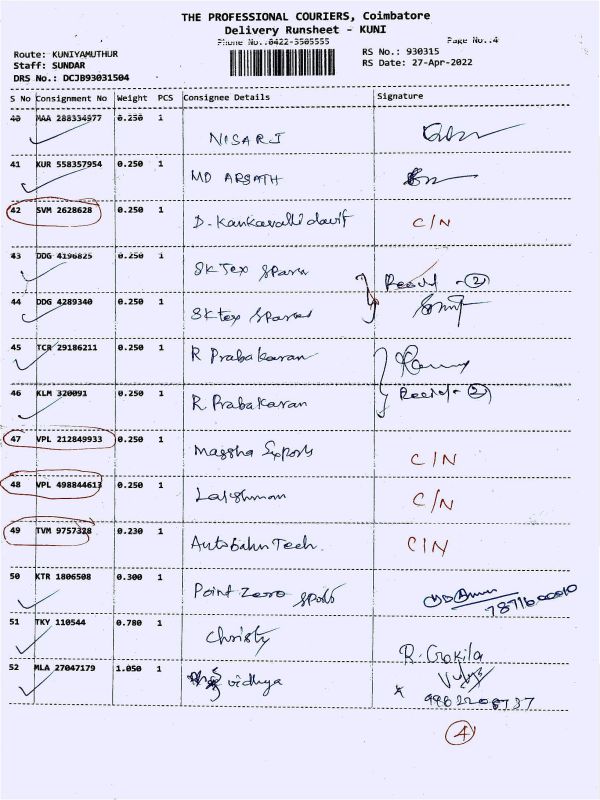 THE PROFESSIONAL COURIERS, Coimbatore
Delivery Runsheet - KUNI
Phone No.:0422-3505555 Page No.:4
Route: KUNIYAMUTHUR RS No.: 930315
Staff: SUNDAR RS Date: 27-Apr-2022
DRS No.: DCJB93031504
S No Consignment No Weight PCS Consignee Details Signature
40 MAA 288334977 0.250 1
NISARJ
41 KUR 558357954 0.250 1
MD ARSATH
42 SVM 2628628 0.250 1
D. Kankavalli C/N
43 DDG 4196825 0.250 1
SK Tex
44 DDG 4289340 0.250 1
SK Tex
45 TCR 29186211 0.250 1
R Prabakaran
46 KLM 320091 0.250 1
R. Prabakaran
47 VPL 212849933 0.250 1
Exports C/N
48 VPL 498844613 0.250 1
C/N
49 TVM 9757328 0.230 1
Autobahn Tech. C/N
50 KTR 1806508 0.300 1
Point Zero
51 TKY 110544 0.780 1
Christy
R. Gokila
52 MLA 27047179 1.050 1
vidhya
4